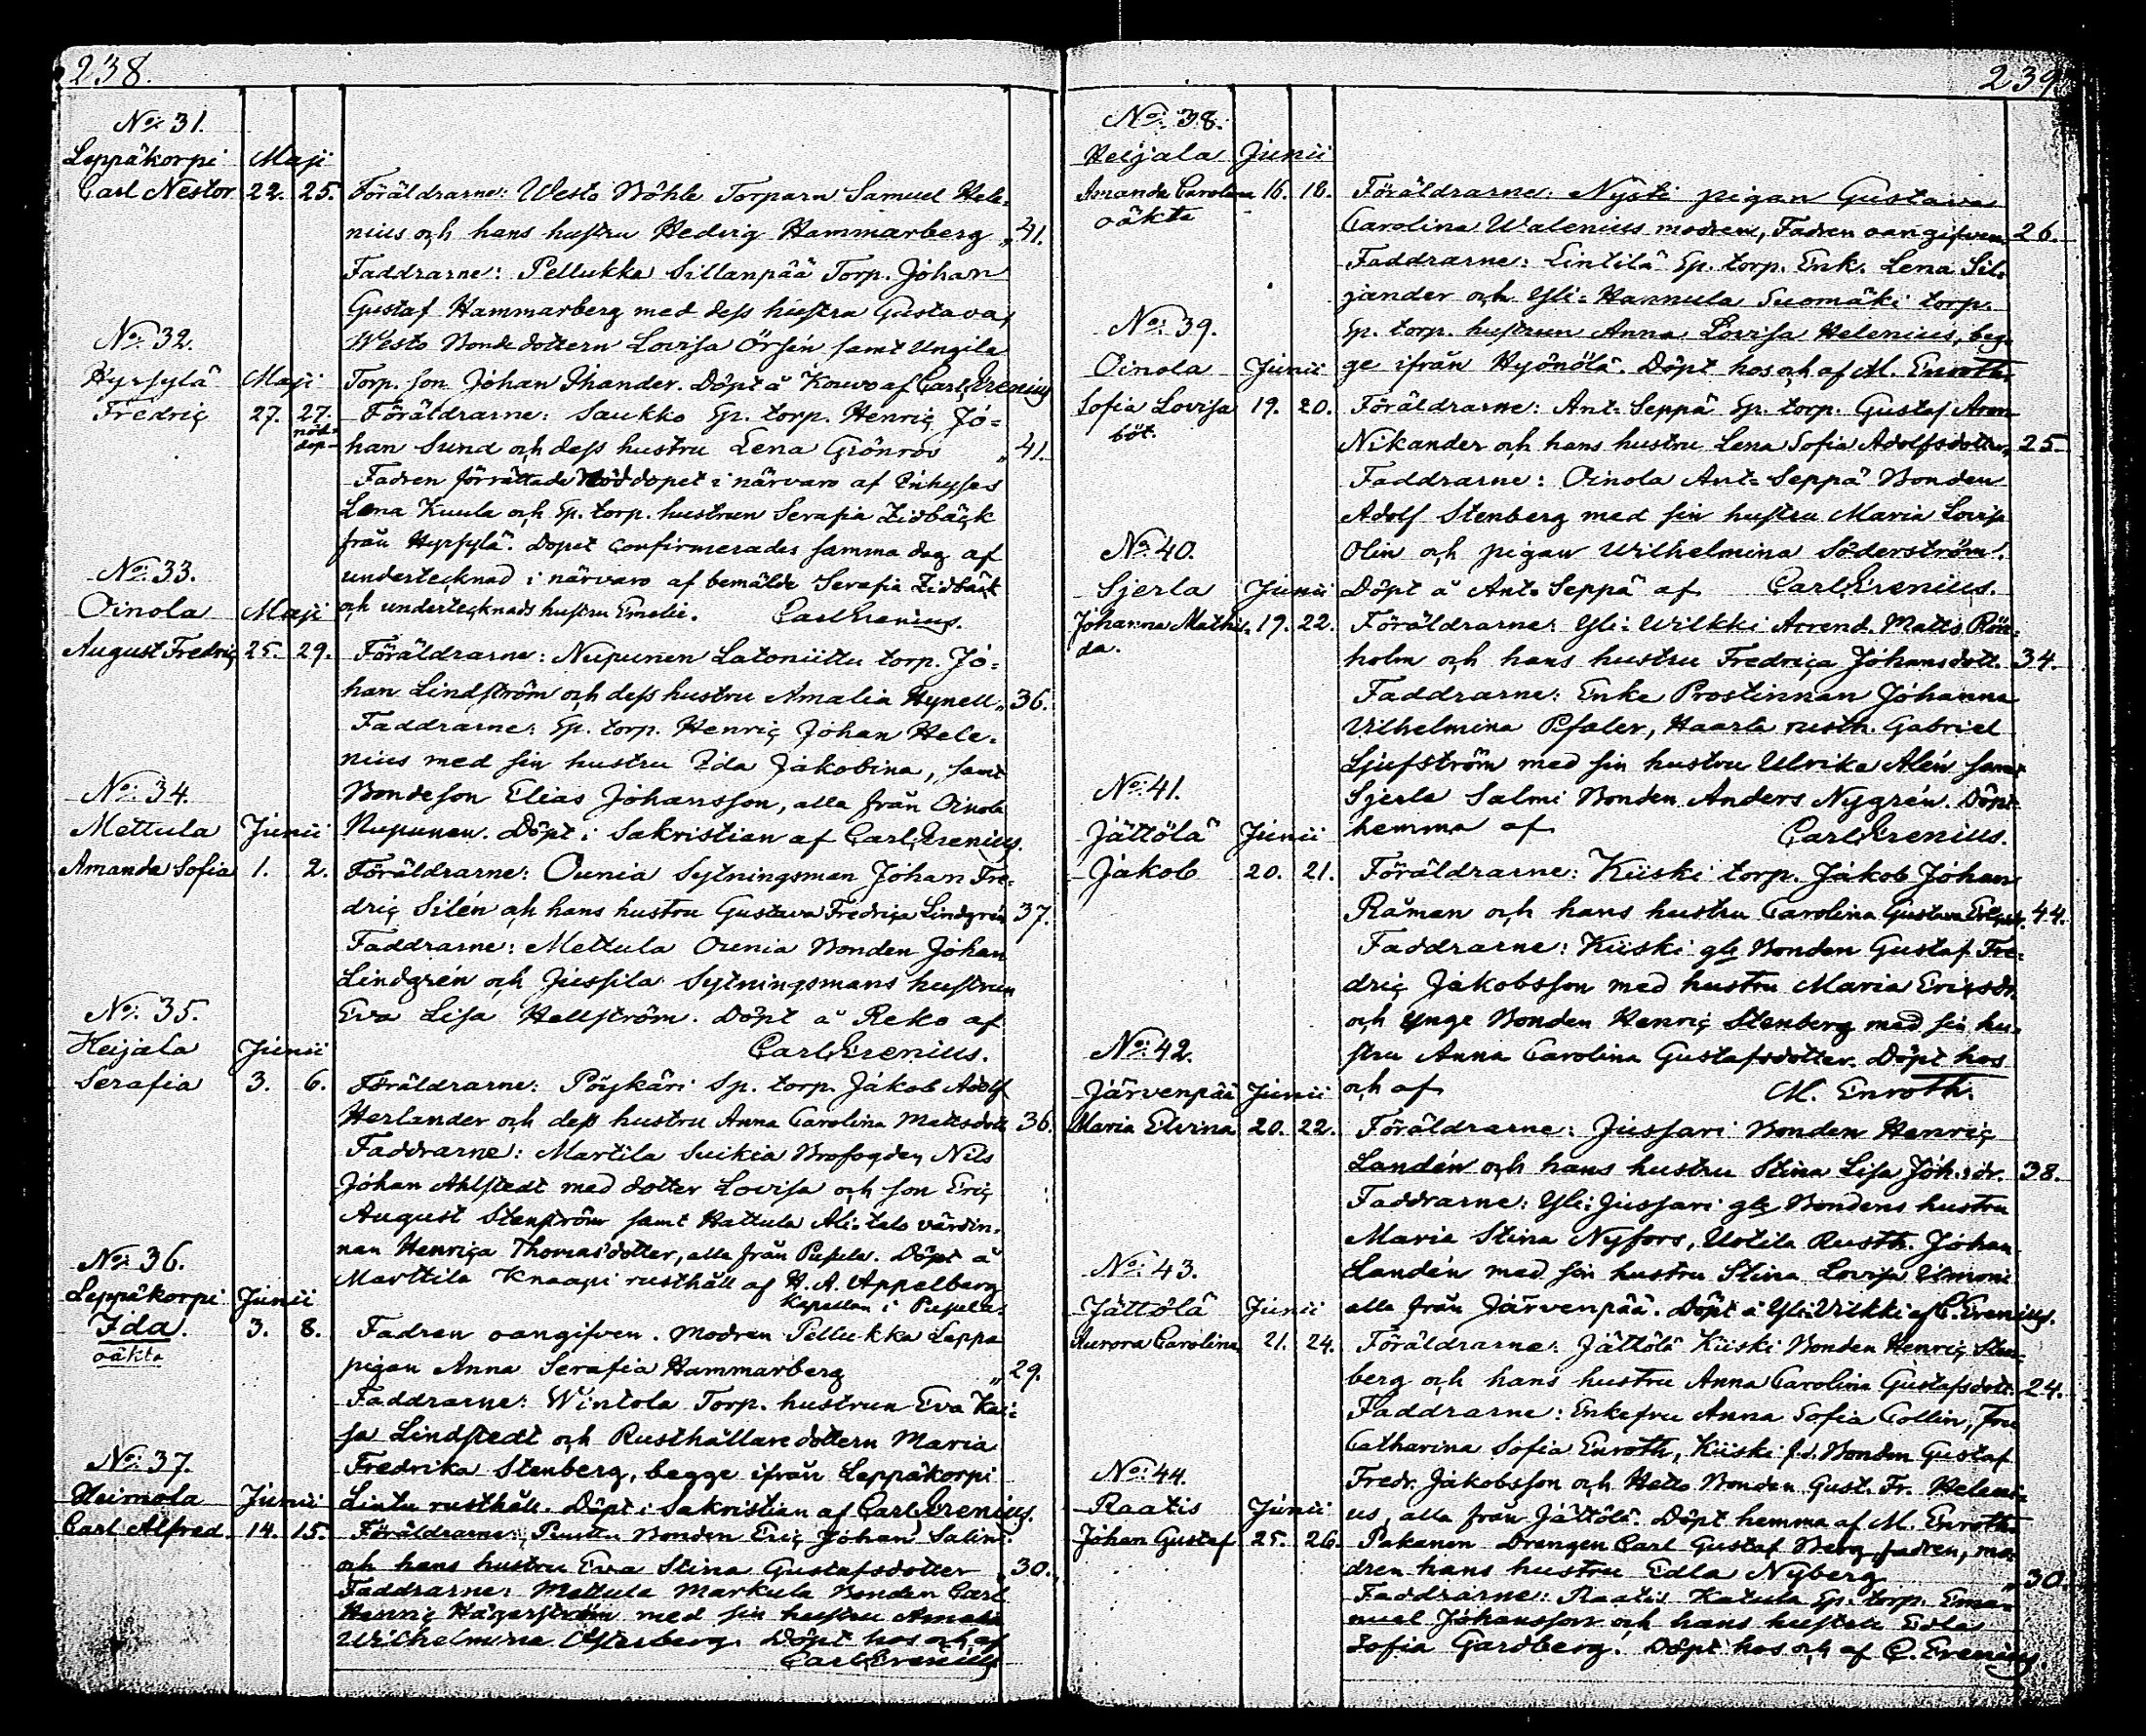 238.
No: 31.
Leppäkorpi Maji
Carl Nestor 22. 25. Föräldrarne: Westo Böhle Torparn Samuel Hele-
nius och hans hustru Hedvig Hammarberg „ 41.
Faddrarne: Pellukka Sillanpää Torp. Johan
Gustaf Hammarberg med dess hustru Gustava,
Westo Bonde dottern Lovisa Örsén samt Ungila
Torp. son Johan Ihander. Döpt å Kouvo af Carl Grenius
No: 32.
Hyrsylä Maji
Fredric 27. 27. nöd-dop- Föräldrarne: Saukko Sp. torp. Henric Jo-
han Sund och dess hustru Lena Grönros „ 41.
Fadren förrättade Nöddopet i närvaro af Inhyses
Lena Kuula och Sp. torp. hustrun Serafia Lidbäck
från Hyrsylä. Dopet confirmerades samma dag af
undertecknad i närvaro af bemälde Serafia Lidbäck
och undertecknads hustru Emelie. Carl Grenius.
No: 33.
Oinola Maji
August Fredric 25. 29. Föräldrarne: Nupunen Latoniittu torp. Jo-
han Lindström och dess hustru Amalia Hynell „ 36.
Faddrarne: Sp. torp. Henric Johan Hele-
nius med sin hustru Ida Jakobina, samt
Bondeson Elias Johansson, alla från Oinola
Nupunen. Döpt i Sakristian af Carl Grenius.
No: 34.
Mettula Junii
Amanda Sofia 1. 2. Föräldrarne: Ounia Sytningsman Johan Fre-
dric Silén och hans hustru Gustava Fredrica Lindgrén 37.
Faddrarne: Mettula Ounia Bonden Johan
Lindgrén och Jussila Sytningsmans hustrun
Eva Lisa Hellström. Döpt å Reko af
Carl Grenius.
No: 35.
Heijala Junii
Serafia 3. 6. Föräldrarne: Pöykäri Sp. torp. Jakob Adolf
Herlander och dess hustru Anna Carolina Mattsdott. 36.
Faddrarne: Martila Suikia Brofogden Nils
Johan Ahlstedt med dotter Lovisa och son Eric
August Stenström samt Hattula Ali-talo värdin-
nan Henrica Thomasdotter, alla från Pusula. Döpt å
Marttila Knaapi rusthåll af H. A. Appelberg
Kapellan i Pusula.
No: 36.
Leppäkorpi Junii
Ida. 3. 8. Fadren oangifven. Modren Pellukka Leppa
oäkta
pigan Anna Serafia Hammarberg „ 29.
Faddrarne: Wintola Torp. hustrun Eva Kai-
sa Lindstedt och Rusthållare dottern Maria
Fredrika Stenberg, begge ifrån Leppäkorpi
Lintu rusthåll. Döpt i Sakristian af Carl Grenius.
No: 37.
Heimola Junii
Carl Alfred 14. 15. Föräldrarne: Bonden Eric Johan Salin
och hans hustru Eva Stina Gustafsdotter „ 30.
Faddrarne: Mettula Markula Bonden Carl
Henric Hägerström med sin hustru Amalia
Wilhelmina Österberg. Döpt hos och af
Carl Grenius
239
No: 38.
Heijala Junii
Amanda Carolina 16. 18. Föräldrarne: Nysti pigan Gustava
oäkta
Carolina Walenius modren, Fadren oangifven, 26.
Faddrarne: Lintilä Sp. torp. Enk. Lena Sil-
jander och Yli-Hannula Suomäki torp.
Sp. torp. hustrun Anna Lovisa Helenius, beg-
ge ifrån Hyönölä. Döpt hos och af M. Enroth.
No: 39.
Oinola Junii
Sofia Lovisa 19. 20. Föräldrarne: Ant-Seppä Sp. torp. Gustaf Aron
Nikander och hans hustru Lena Sofia Adolfsdotter, 25.
Faddrarne: Oinola Ant-Seppä Bonden
Adolf Stenberg med sin hustru Maria Lovisa
Olin och pigan Wilhelmina Söderström.
Döpt å Ant-Seppä af Carl Grenius.
No: 40.
Sjerla Junii
Johanna Mathil- 19. 22. Föräldrarne: Yli-Wilkki Arrend. Matts Rön-
da.
holm och hans hustru Fredrica Johansdott. 34.
Faddrarne: Enke Prostinnan Johanna
Vilhelmina Pfaler, Haarla rusth. Gabriel
Ljufström med sin hustru Ulrika Alén samt
Sjerla Salmi Bonden Anders Nygrén. Döpt
hemma af Carl Grenius.
No: 41.
Jättölä Junii
Jakob 20. 21. Föräldrarne: Kiiski torp. Jakob Johan
Råman och hans hustru Carolina Gustava 44.
Faddrarne: Kiiski gle Bonden Gustaf Fre-
dric Jakobsson med hustru Maria Ericsdr.
och Ynge Bonden Henric Stenberg med sin hu-
stru Anna Carolina Gustafsdotter. Döpt hos
och af M. Enroth.
No: 42.
Järvenpää Junii
Maria Elvina 20. 22. Föräldrarne: Jussari Bonden Henric
Landén och hans hustru Stina Lisa Joh: dr. 38.
Faddrarne: Yli-Jussari gle Bondens hustru
Maria Stina Nyfors, Uotila Rusth. Johan
Landén med sin hustru Stina Lovisa Simoni
alla från Järvenpää. Döpt å Yli-Vilkki af C. Grenius.
No: 43.
Jättölä Junii
Aurora Carolina 21. 24. Föräldrarne: Jättölä Kiiski Bonden Henric Sten-
berg och hans hustru Anna Carolina Gustafsdott. 24.
Faddrarne: Enkefru Anna Sofia Collin, fru
Catharina Sofia Enroth, Kiiski f.d. Bonden Gustaf
Fredr. Jakobsson och Hatto Bonden Gust. Fr. Heleni-
us, alla från Jättölä. Döpt hemma af M. Enroth.
No: 44.
Raatis Junii
Johan Gustaf 25. 26. Pakanen Drengen Carl Gustaf Berg fadren, mo-
dren hans hustru Edla Nyberg „ 30.
Faddrarne: Raatis Katula Sp. torp. Ema-
nuel Johansson och hans hustru Edla
Sofia Gardberg. Döpt hos och af C. Grenius.